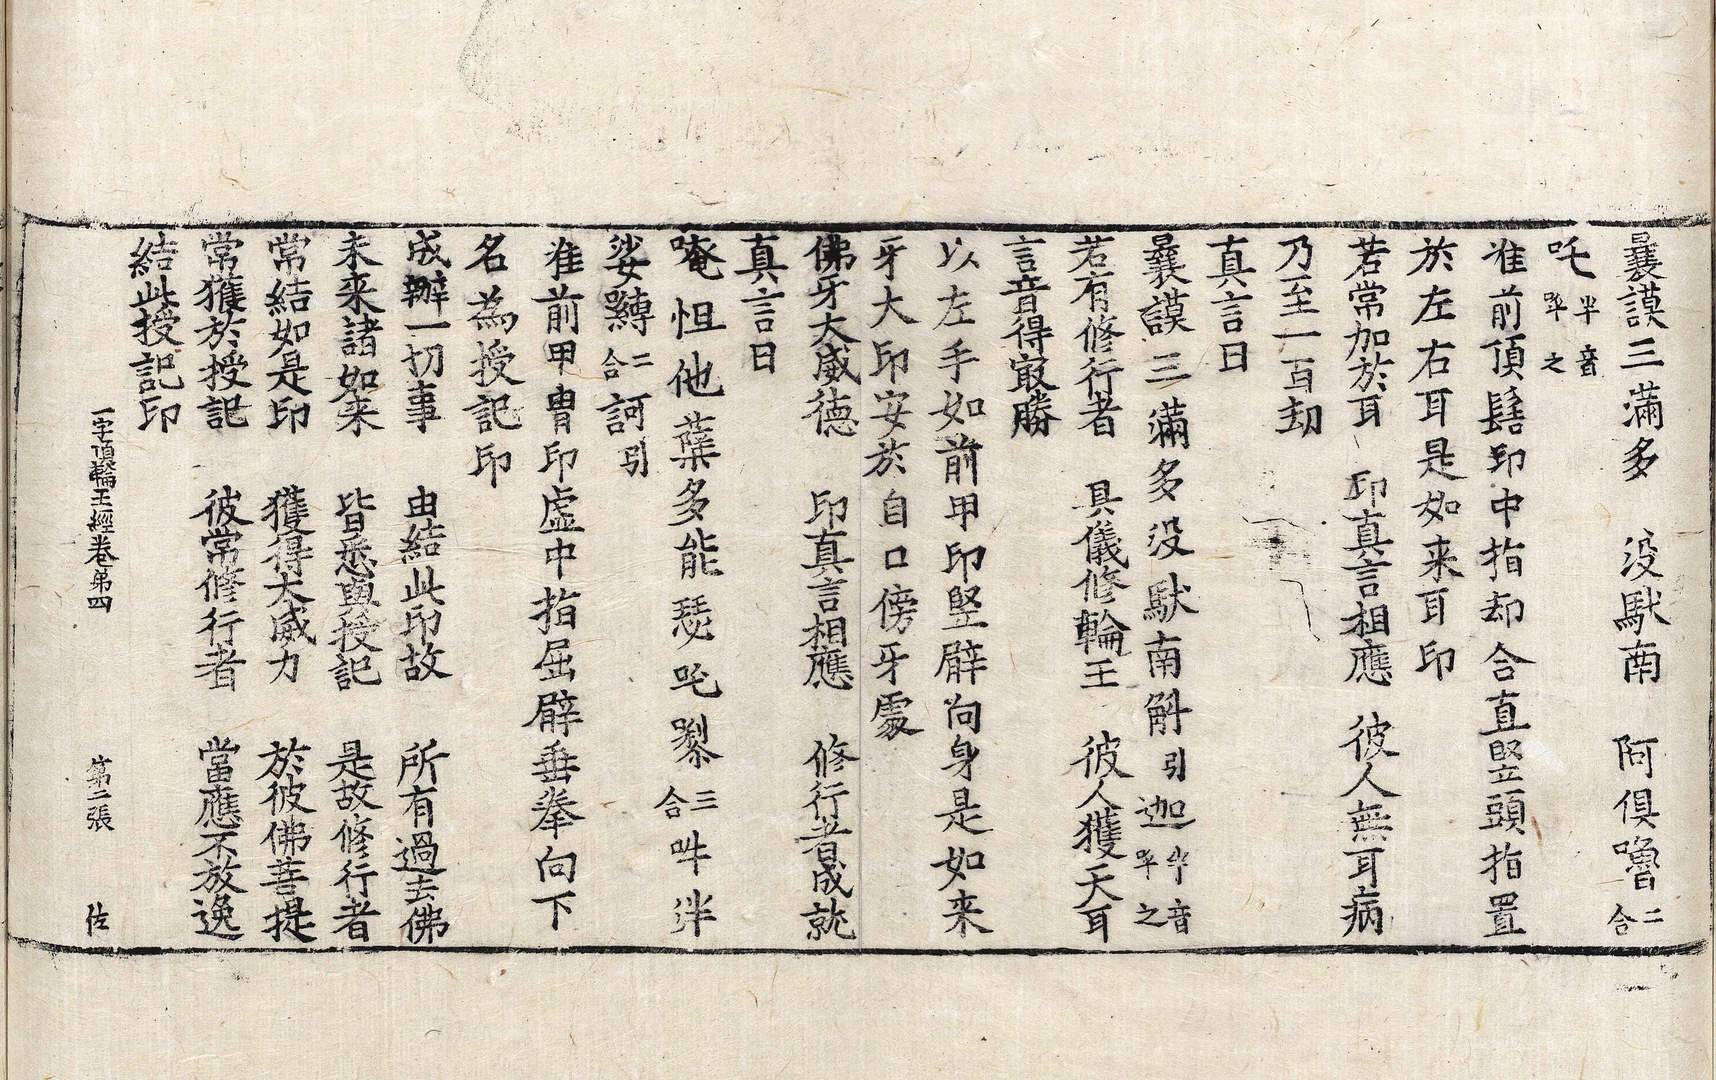 曩謨三滿多 没馱南 阿俱嚕二合
吒半音呼之
准前頂髻印中指却合直竪頭指置
於左右耳是如来耳印
若常加於耳 印真言相應 彼人無耳病
乃至一百劫
真言曰
曩謨三滿多没馱南斛引迦半音呼之
若有修行者 具儀修輪王 彼人獲天耳
言音得㝡勝
以左手如前甲印竪臂向身是如来
牙大印安於自口傍牙處
佛牙大威德 印真言相應 修行者成就
真言曰
唵怛他蘖多能瑟吒𠼝三合吽泮
娑縛二合訶引
准前甲冑印虛中指屈臂垂拳向下
名為授記印
成辦一切事 由結此印故 所有過去佛
未来諸如来 皆悉與授記 是故修行者
常結如是印 獲得大威力 於彼佛菩提
常獲於授記 彼常修行者 當應不放逸
結此授記印
一字頂輪王經卷第四 第二張 佐